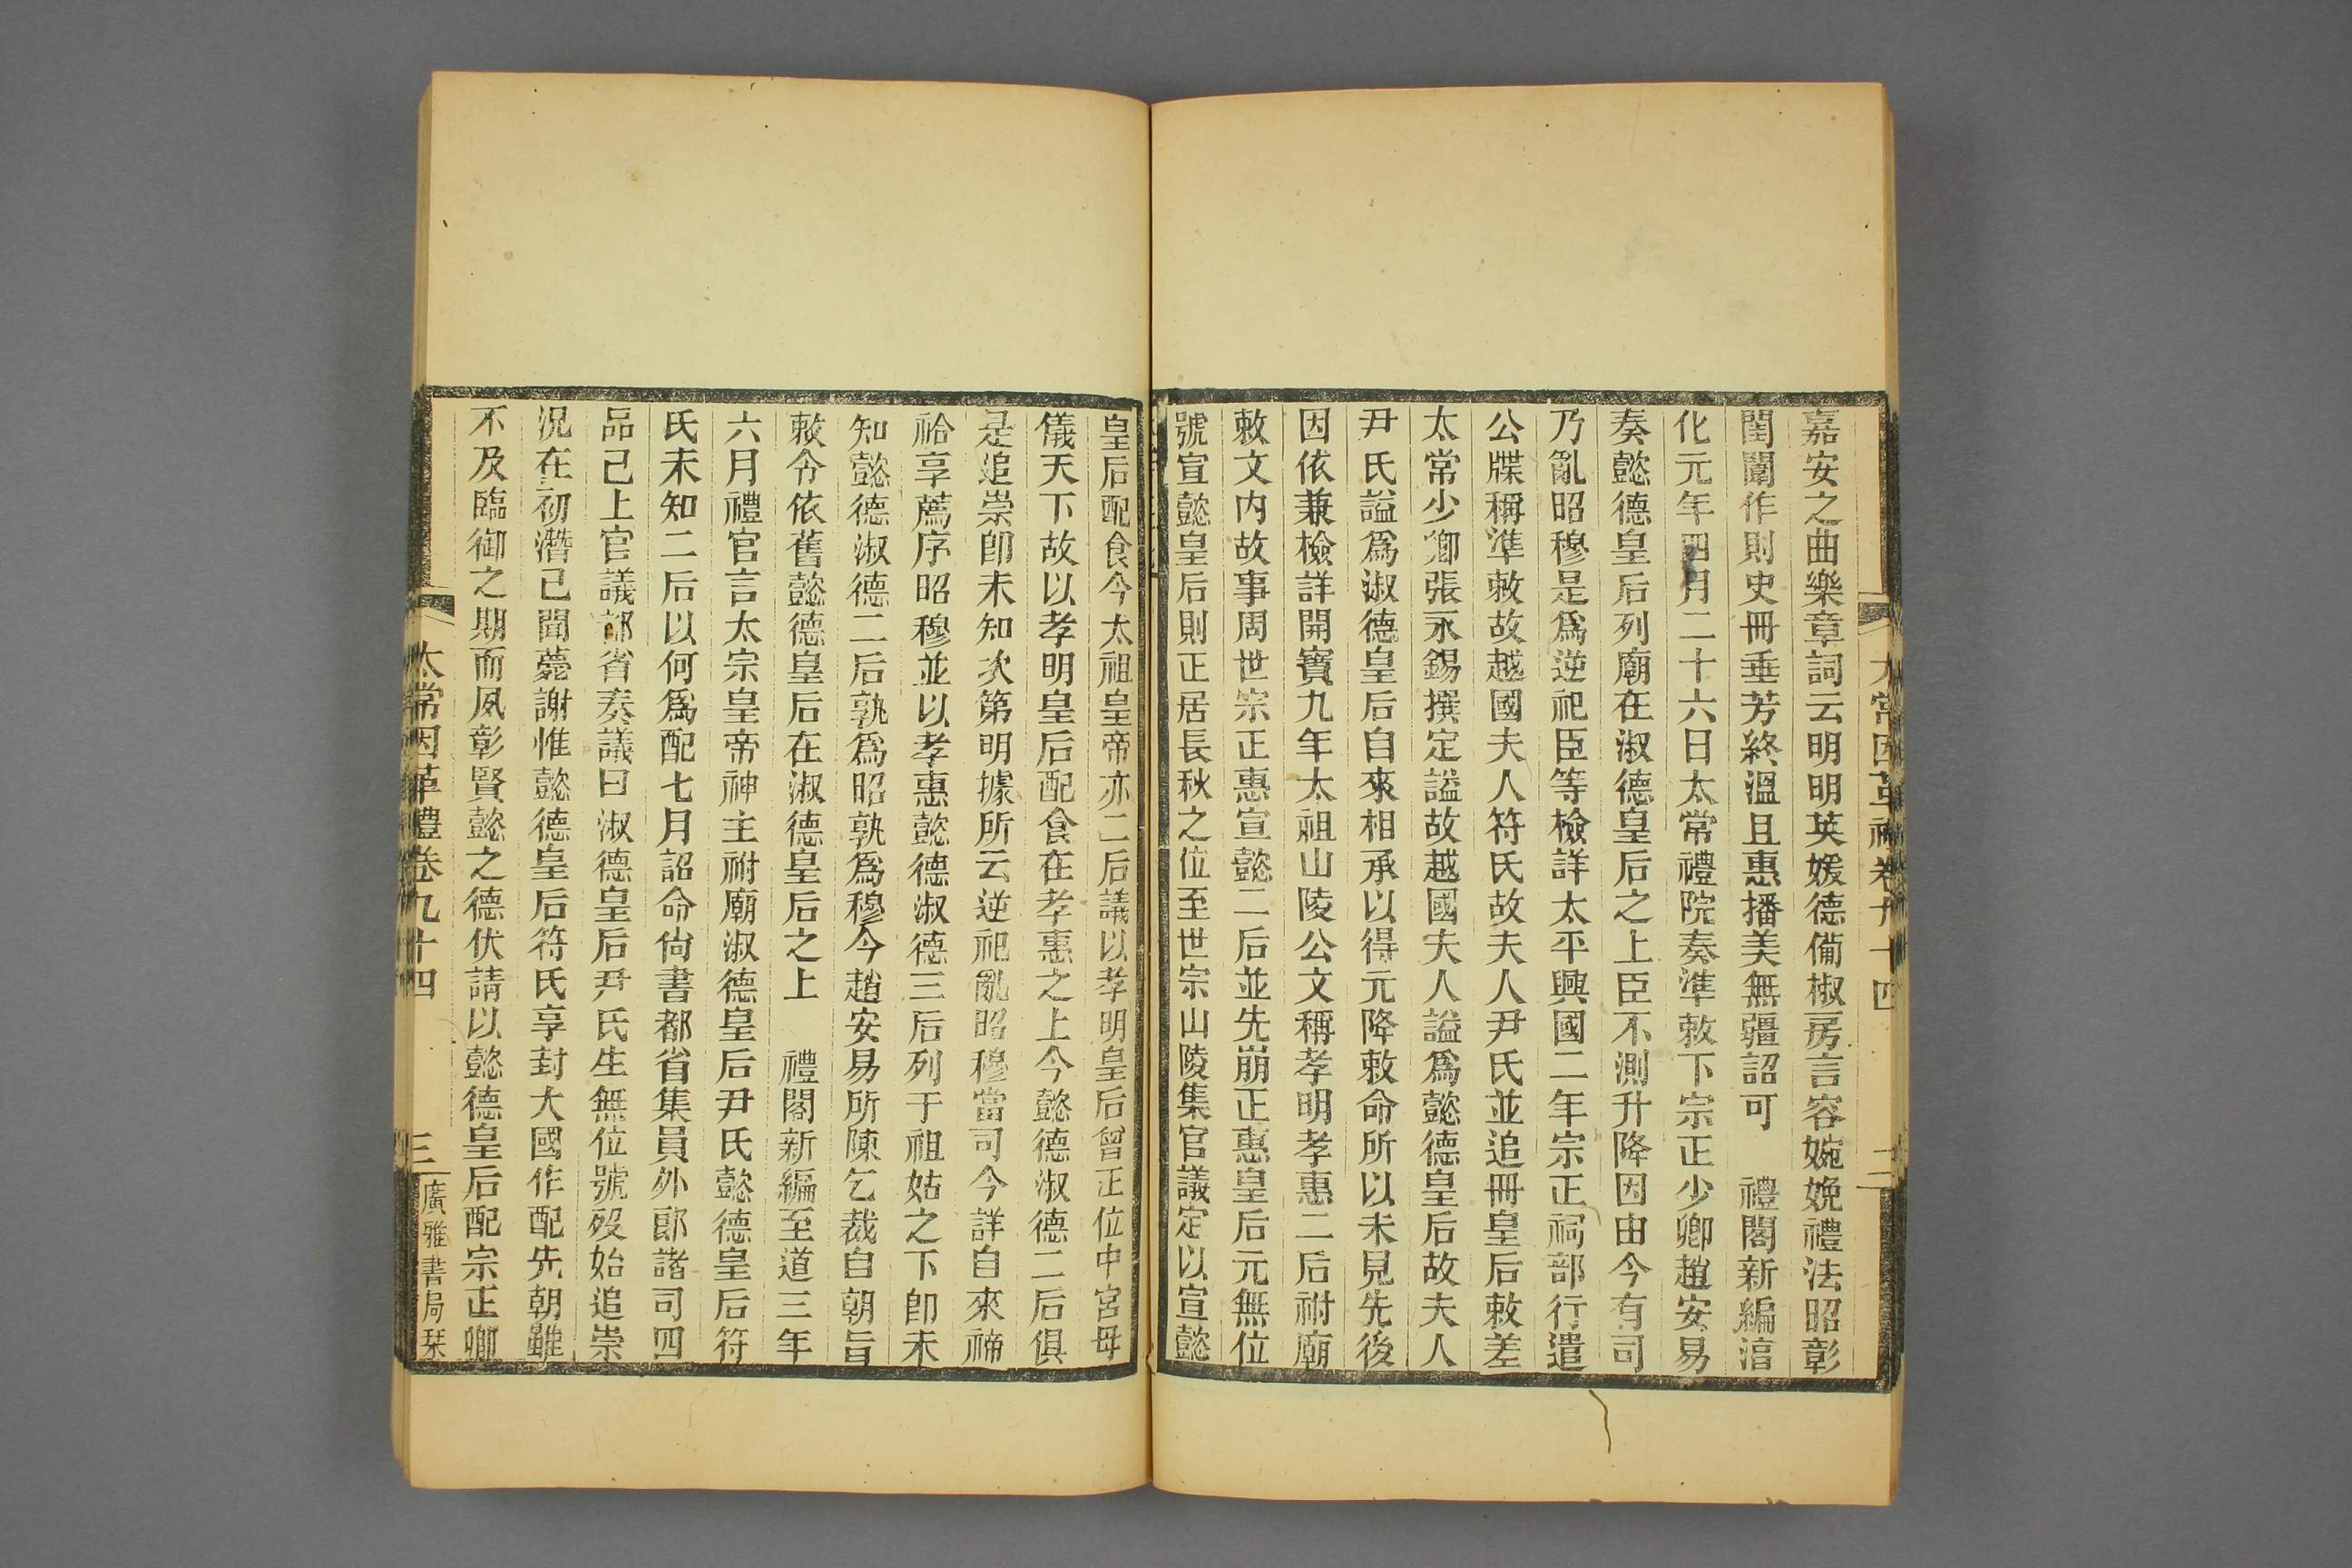 太常因革禮卷九十四 二
嘉安之曲樂章詞云明明英媛德備椒房言容婉娩禮法昭彰
閨闈作則史冊垂芳終溫且惠播美無疆詔可 禮閣新編湻
化元年四月二十六日太常禮院奏準敕下宗正少卿趙安易
奏懿德皇后列廟在淑德皇后之上臣不測升降因由今有司
乃亂昭穆是爲逆祀臣等檢詳太平興國二年宗正祠部行遣
公牒稱準敕故越國夫人符氏故夫人尹氏並追冊皇后敕差
太常少卿張永錫撰定謚故越國夫人謚爲懿德皇后故夫人
尹氏謚爲淑德皇后自來相承以得元降敕命所以未見先後
因依兼檢詳開寶九年太祖山陵公文稱孝明孝惠二后祔廟
敕文内故事周世宗正惠宣懿二后並先崩正惠皇后元無位
號宣懿皇后則正居長秋之位至世宗山陵集官議定以宣懿
皇后配食今太祖皇帝亦二后議以孝明皇后曾正位中宮母
儀天下故以孝明皇后配食在孝惠之上今懿德淑德二后俱
是追崇卽未知次第明據所云逆祀亂昭穆當司今詳自來禘
祫享薦序昭穆並以孝惠懿德淑德三后列于祖姑之下卽未
知懿德淑德二后孰爲昭孰爲穆今趙安易所陳乞裁自朝旨
敕令依舊懿德皇后在淑德皇后之上 禮閣新編至道三年
六月禮官言太宗皇帝神主祔廟淑德皇后尹氏懿德皇后符
氏未知二后以何爲配七月詔命尙書都省集員外郞諸司四
品已上官議都省奏議曰淑德皇后尹氏生無位號歿始追崇
況在初潛已聞薨謝惟懿德皇后符氏享封大國作配先朝雖
不及臨御之期而夙彰賢懿之德伏請以懿德皇后配宗正卿
太常因革禮卷九十四 三 廣雅書局栞